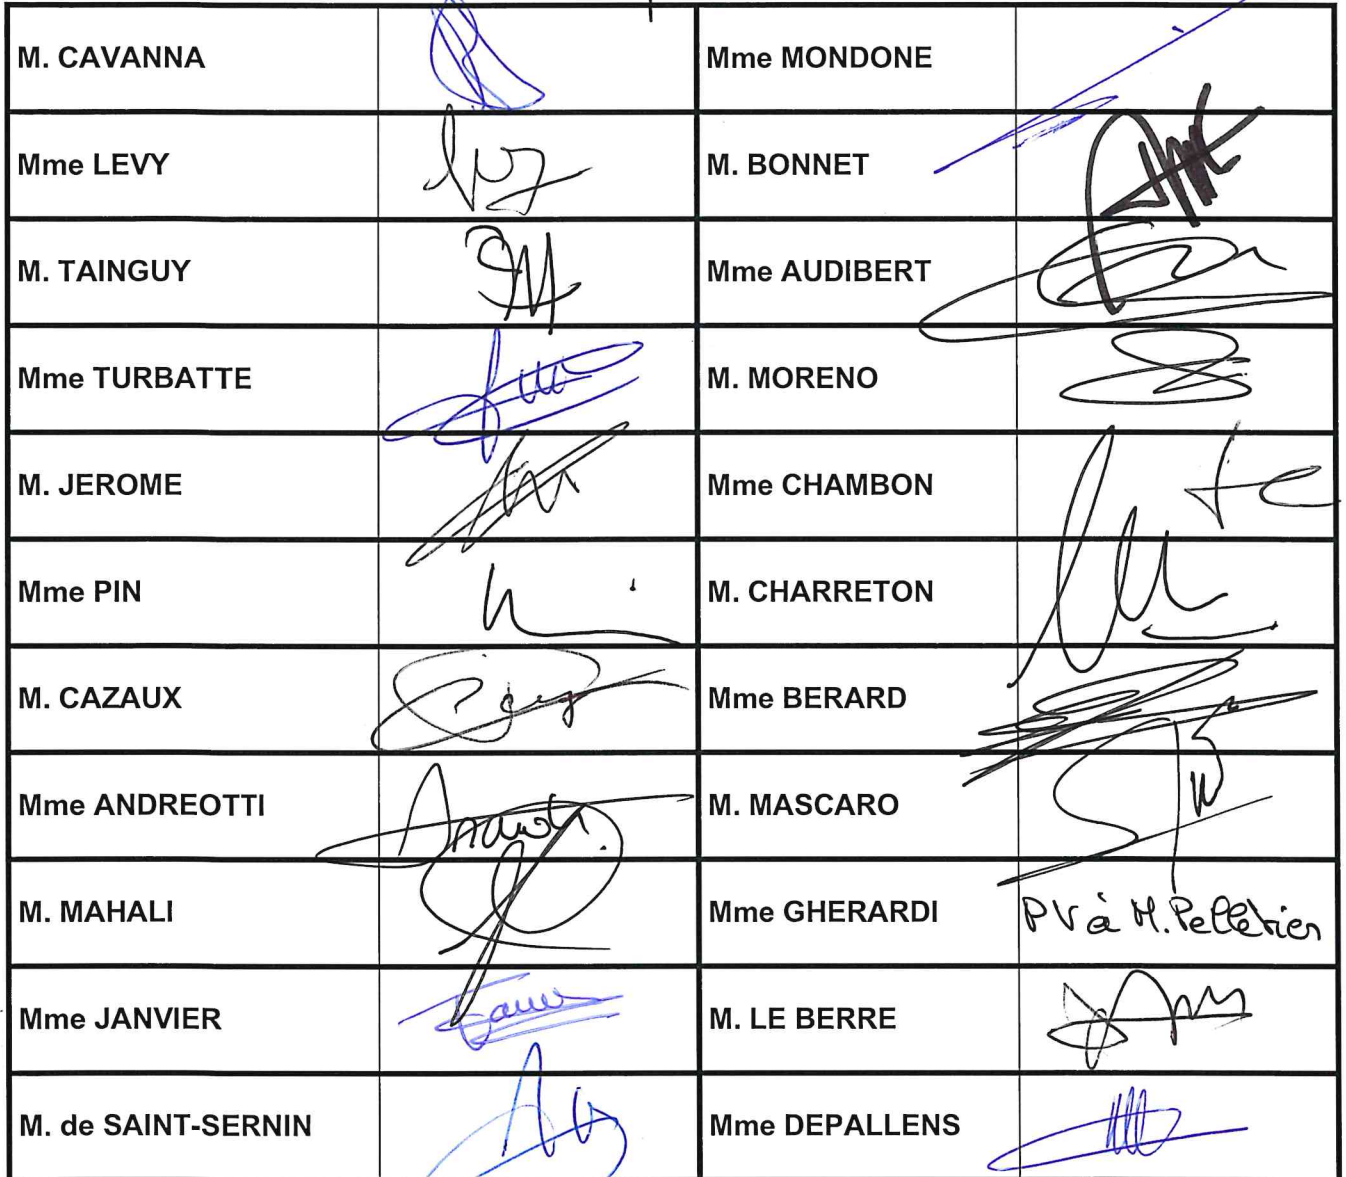 M. CAVANNA
Mme MONDONE
Mme LEVY
M. BONNET
M. TAINGUY
Mme AUDIBERT
Mme TURBATTE
M. MORENO
M. JEROME
Mme CHAMBON
Mme PIN
M. CHARRETON
M. CAZAUX
Mme BERARD
Mme ANDREOTTI
M. MASCARO
M. MAHALI
Mme GHERARDI PV à M. Pelletier
Mme JANVIER
M. LE BERRE
M. de SAINT-SERNIN
Mme DEPALLENS